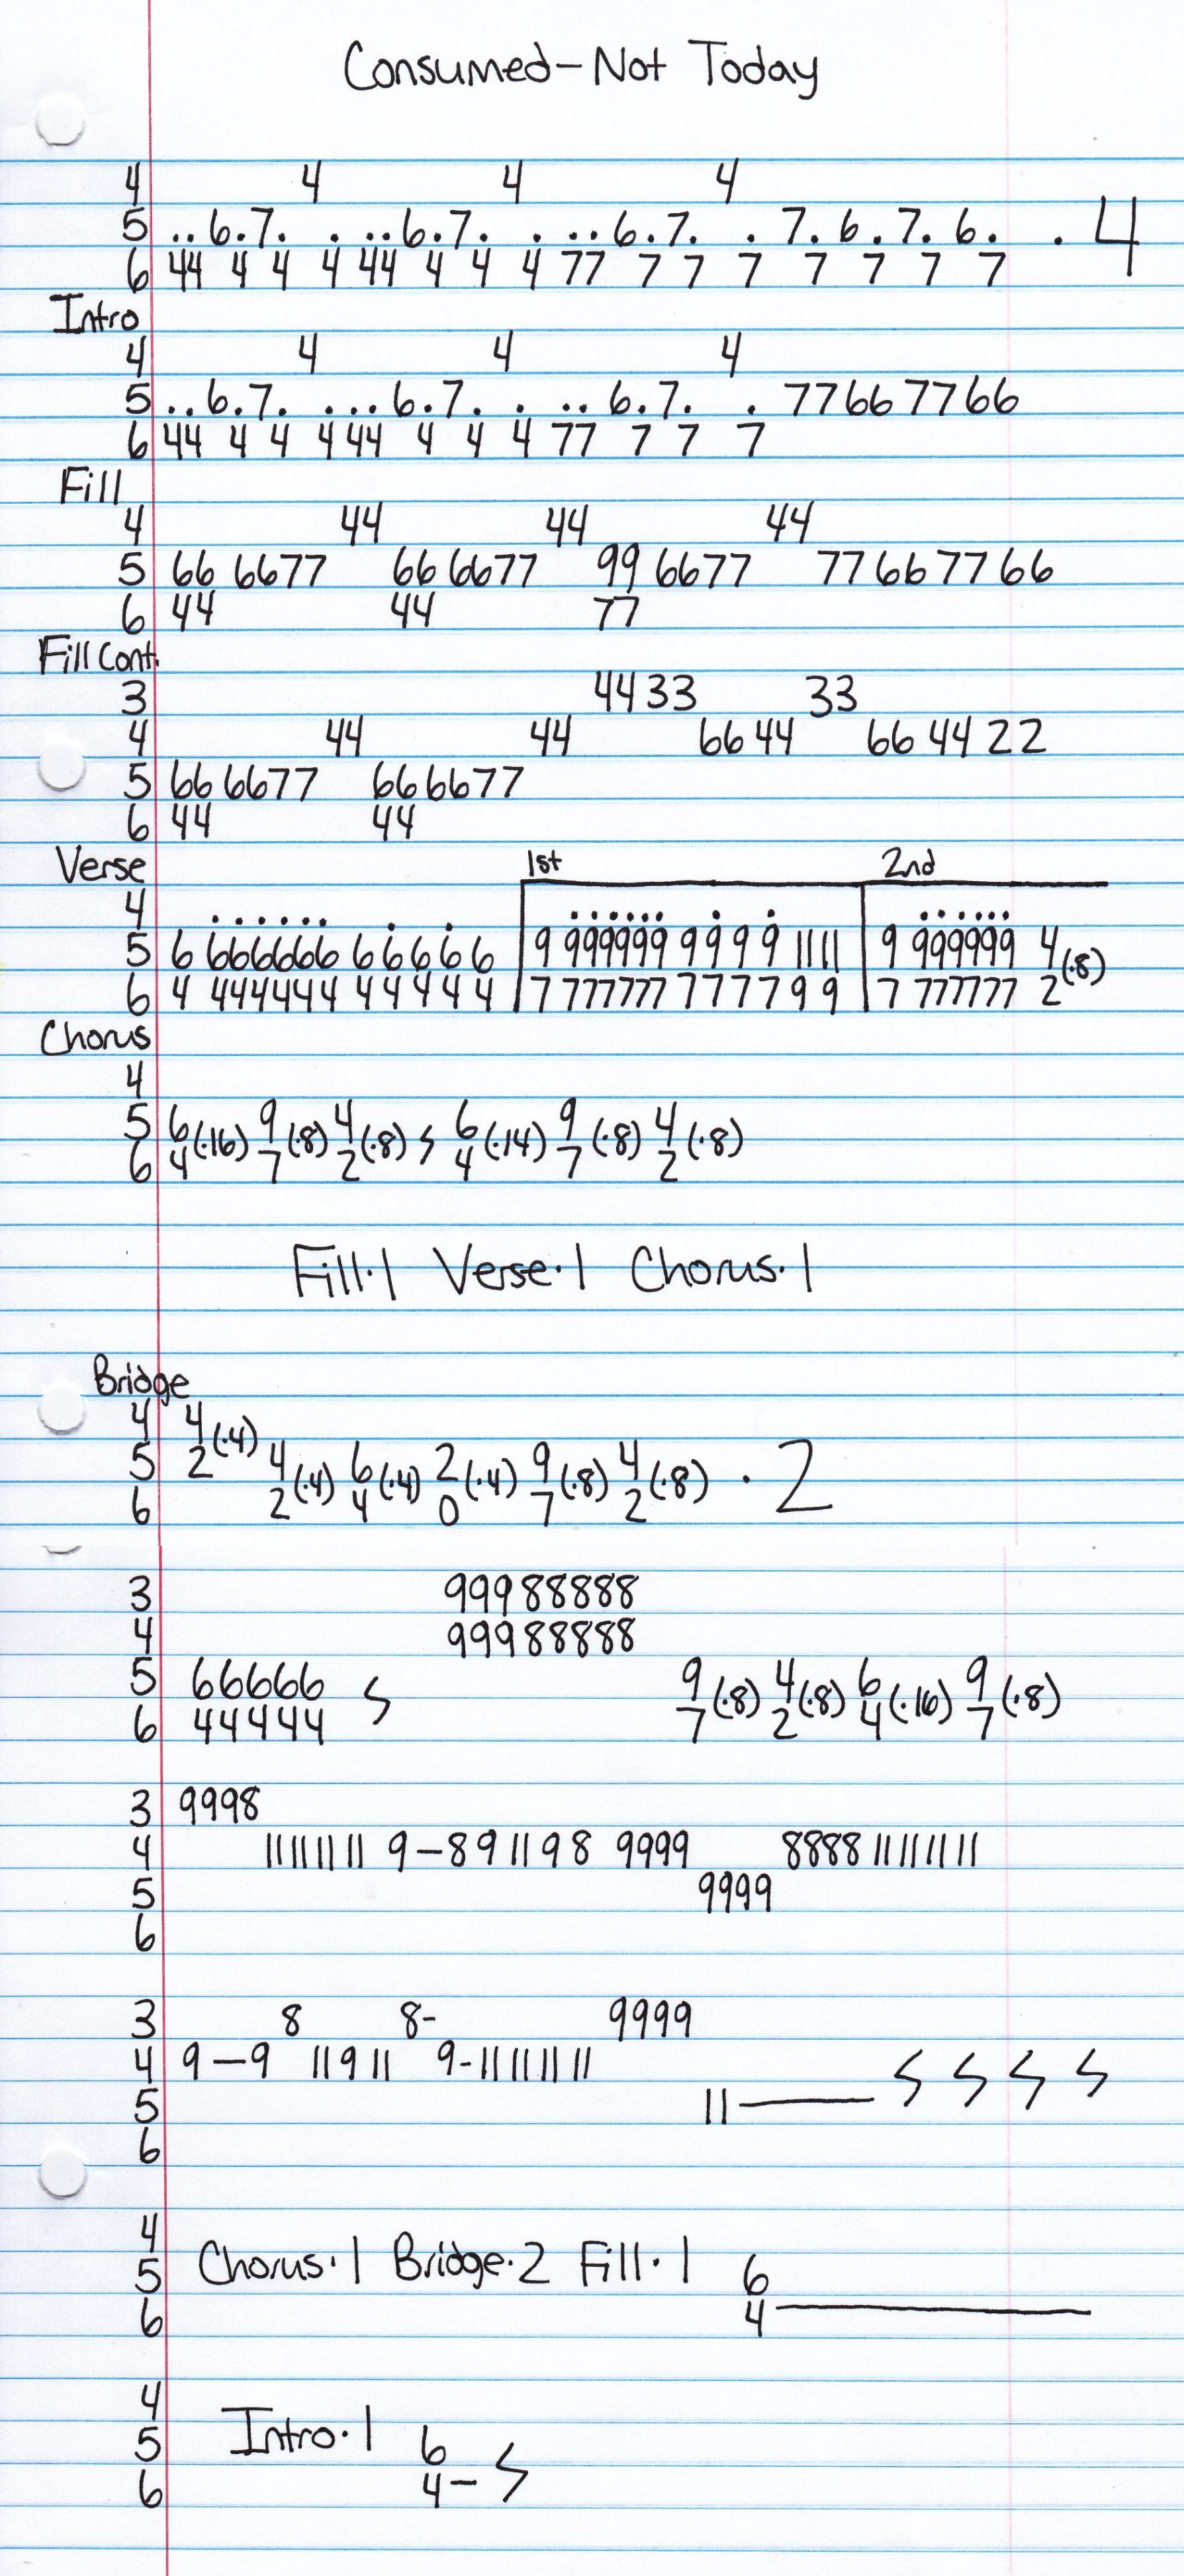 Consumed-Not Today
4 4 4 4
5 ..6.7. . ..6.7. . ..6.7. . 7.6.7.6. . .4
6 44 4 4 4 44 4 4 4 77 7 7 7 7 7 7 7
Intro
4 4 4 4
5 ..6.7. ...6.7. . ..6.7. . 77667766
6 44 4 4 4 44 4 4 4 77 7 7 7
Fill
4 44 44 44
5 66 6677 66 6677 99 6677 77667766
6 44 44 77
Fill Cont.
3 4433 33
4 44 44 6644 664422
5 66 6677 66 6677
6 44 44
Verse 1st 2nd
4 ...... . . ...... . . ......
5 6 666666 6 6 6 6 6 9 999999 9 9 9 9 11 11 9 999999 4
6 4 444444 4 4 4 4 4 7 777777 7 7 7 7 9 9 7 777777 2 (·8)
Chorus
4
5 6 9 4 6 9 4
6 4(·16) 7(·8) 2(·8) 4(·14) 7(·8) 2(·8)
Fill·1 Verse·1 Chorus·1
Bridge
4 4
5 2(·4) 4 6 2 9 4
6 2(·4) 4(·4) 0(·4) 7(·8) 2(·8) ·2
3 99988888
4 99988888
5 66666 9 4 6 9
6 44444 7(·8) 2(·8) 4(·16) 7(·8)
3 9998
4 11 11 11 11 9-8 9 11 9 8 9999 8888 11 11 11 11
5 9999
6
3 8 8- 9999
4 9-9 11 9 11 9-11 11 11 11
5 11
6
4
5 Chorus·1 Bridge·2 Fill·1 6
6 4
4
5 Intro·1 6
6 4-